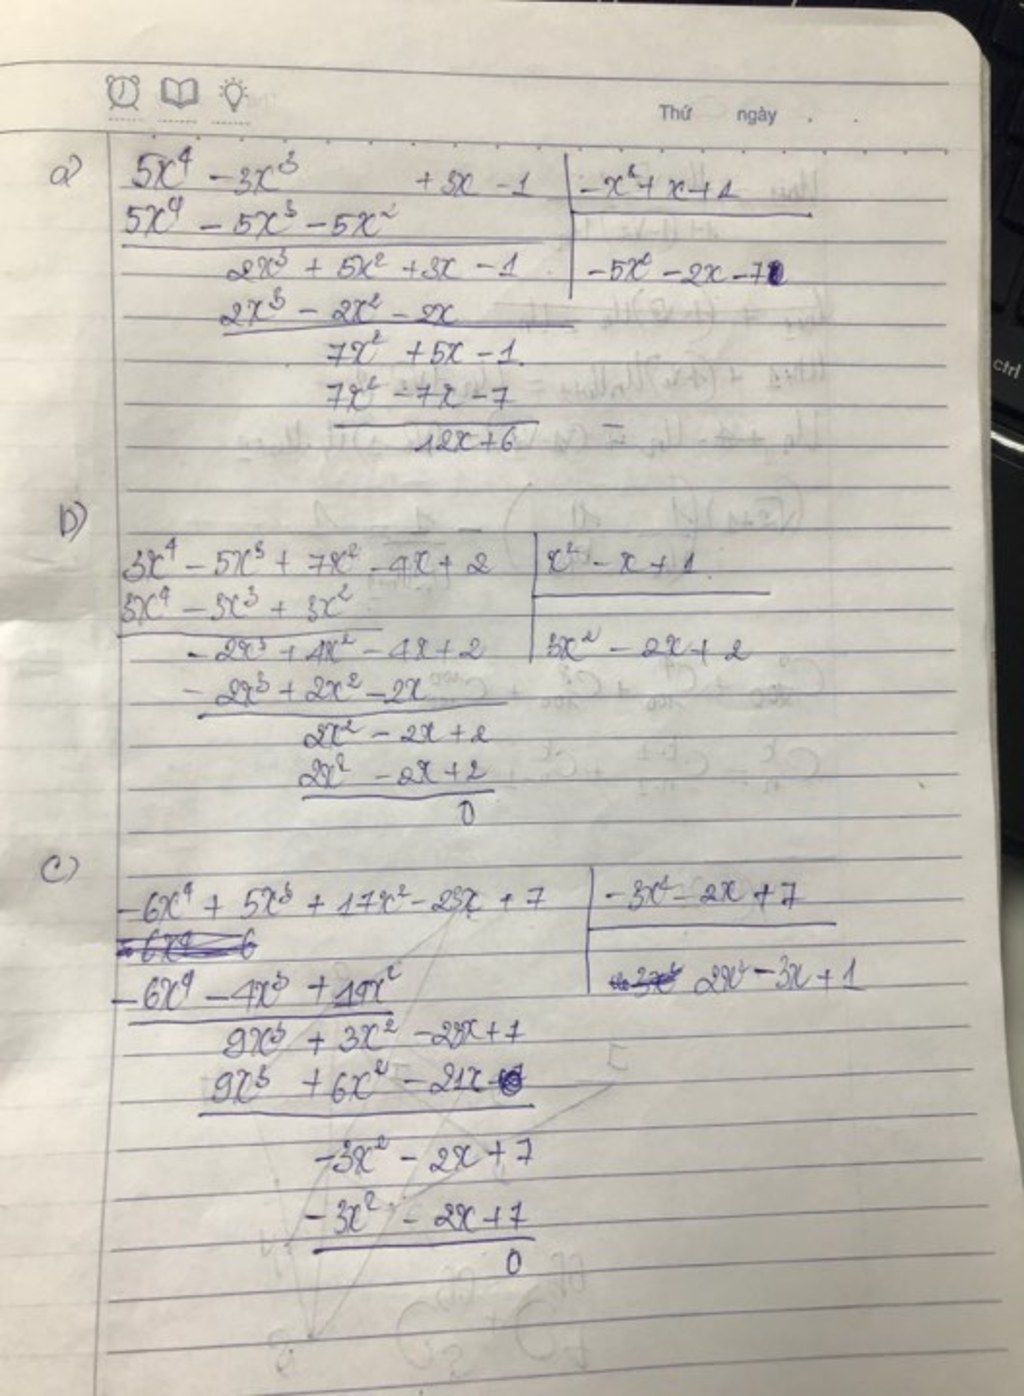 Thứ ngày . .
a) 5x⁴ - 3x³ + 3x - 1 | -x² + x + 1
5x⁴ - 5x³ - 5x²
2x³ + 5x² + 3x - 1 | -5x² - 2x - 7
2x³ - 2x² - 2x
7x² + 5x - 1
7x² - 7x - 7
12x + 6
b)
3x⁴ - 5x³ + 7x² - 4x + 2 | x² - x + 1
3x⁴ - 3x³ + 3x²
- 2x³ + 4x² - 4x + 2 | 3x² - 2x + 2
- 2x³ + 2x² - 2x
2x² - 2x + 2
2x² - 2x + 2
0
c)
-6x⁴ + 5x³ + 17x² - 23x + 7 | -3x² - 2x + 7
-6x⁴ - 4x³ + 14x² | 2x² - 3x + 1
9x³ + 3x² - 23x + 7
9x³ + 6x² - 21x
-3x² - 2x + 7
-3x² - 2x + 7
0
ctrl